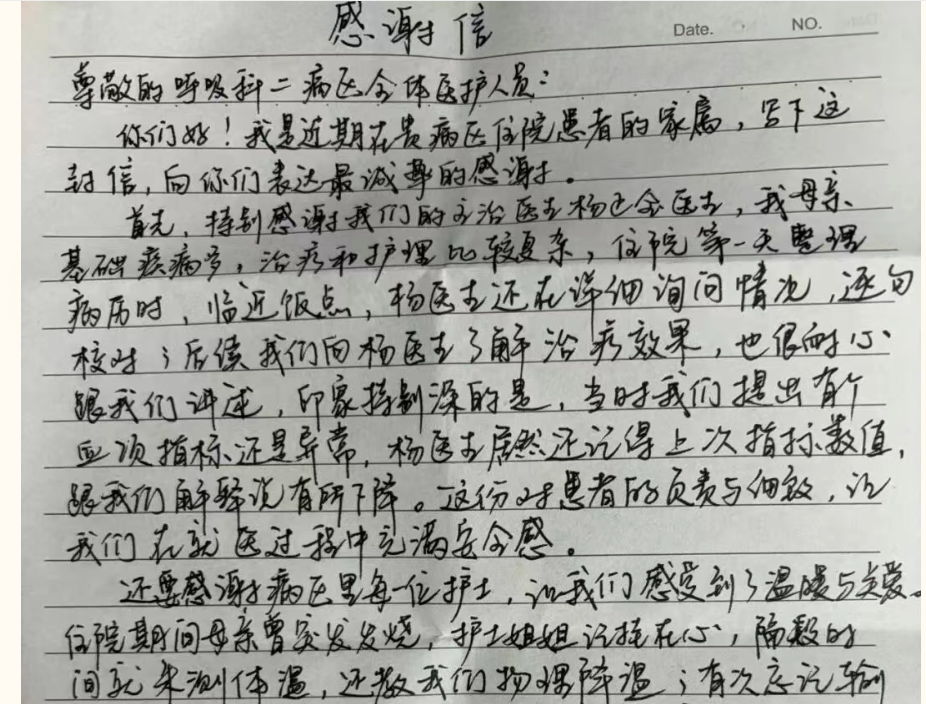 感谢信
Date. NO.
尊敬的呼吸科二病区全体医护人员：
你们好！我是近期在贵病区住院患者的家属，写下这
封信，向你们表达最诚挚的感谢。
首先，特别感谢我们的主治医生杨医生，我母亲
基础疾病多，治疗和护理比较复杂，住院第一天整理
病历时，临近饭点，杨医生还在详细询问情况，逐句
核对；后续我们向杨医生了解治疗效果，也很耐心
跟我们讲述，印象特别深的是，当时我们提出有个
血项指标还是异常，杨医生居然还记得上次指标数值，
跟我们解释说有所下降。这份对患者的负责与细致，让
我们在就医过程中充满安全感。
还要感谢病区里每一位护士，让我们感受到了温暖与关爱。
住院期间母亲曾突发发烧，护士姐姐记挂在心，隔段时
间就来测体温，还教我们物理降温；有次忘记输